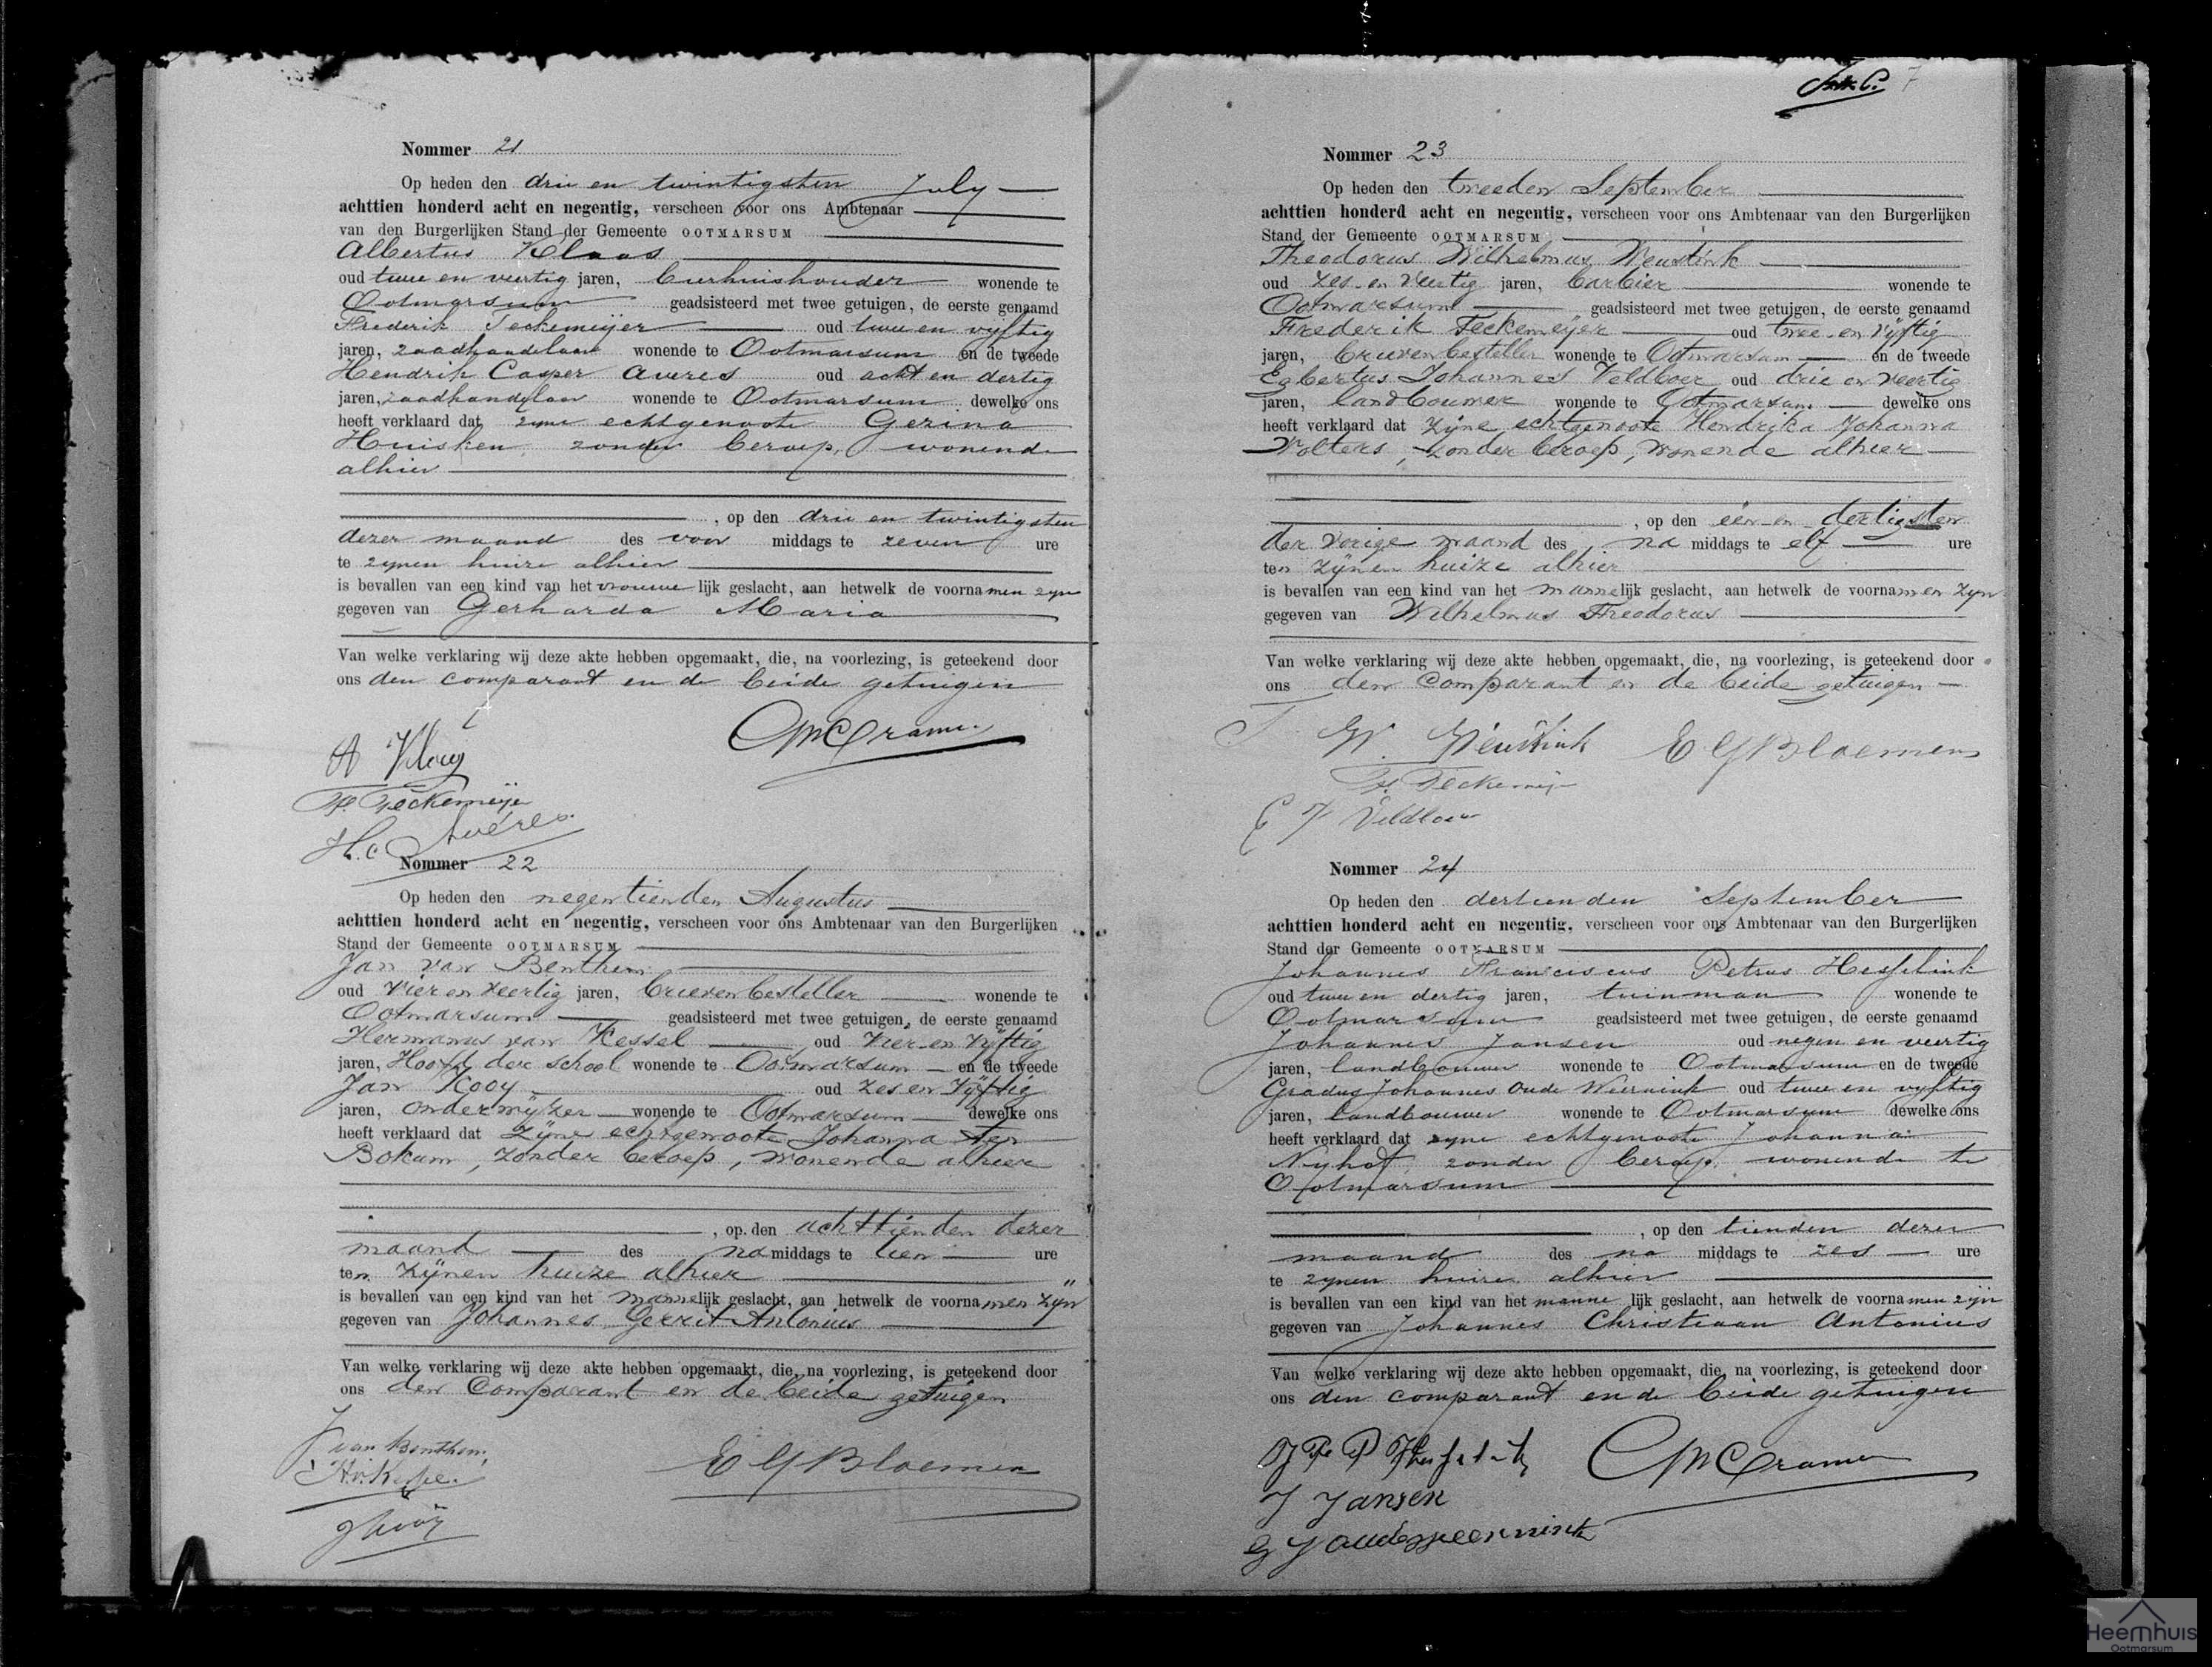 Nommer 21
Op heden den drie en twintigsten July
achttien honderd acht en negentig, verscheen voor ons Ambtenaar
van den Burgerlijken Stand der Gemeente OOTMARSUM
Albertus Klaas
oud twee en veertig jaren, bierhuishouder wonende te
Ootmarsum geadsisteerd met twee getuigen, de eerste genaamd
Frederik Teckemeijer oud twee en vijftig
jaren, zaadhandelaar wonende te Ootmarsum en de tweede
Hendrik Casper Averes oud acht en dertig
jaren, zaadhandelaar wonende te Ootmarsum dewelke ons
heeft verklaard dat zijne echtgenoote Gezina
Huisken zonder beroep, wonende
alhier
, op den drie en twintigsten
dezer maand des voor middags te zeven ure
te zijnen huize alhier
is bevallen van een kind van het vrouwelijk geslacht, aan hetwelk de voornamen zijn
gegeven van Gerharda Maria
Van welke verklaring wij deze akte hebben opgemaakt, die, na voorlezing, is geteekend door
ons den comparant en de beide getuigen
A Klaas
CMCramer
F. Teckemeijer
H.C Averes
Nommer 22
Op heden den negentienden Augustus
achttien honderd acht en negentig, verscheen voor ons Ambtenaar van den Burgerlijken
Stand der Gemeente OOTMARSUM
Jan van Benthem
oud vier en veertig jaren, brievenbesteller wonende te
Ootmarsum geadsisteerd met twee getuigen, de eerste genaamd
Hermanus van Kessel oud vier en vijftig
jaren, Hoofd der school wonende te Ootmarsum en de tweede
Jan Kooy oud zes en vijftig
jaren, onderwijzer wonende te Ootmarsum dewelke ons
heeft verklaard dat zijne echtgenoote Johanna ten
Bokum, zonder beroep, wonende alhier
, op den achttienden dezer
maand des na middags te tien ure
ten zijnen huize alhier
is bevallen van een kind van het mannelijk geslacht, aan hetwelk de voornamen zijn
gegeven van Johannes Gerrit Antonius
Van welke verklaring wij deze akte hebben opgemaakt, die, na voorlezing, is geteekend door
ons den comparant en de beide getuigen
J van Benthem
H.v.Kessel
E G Bloemen
J Kooij
7
Nommer 23
Op heden den tweeden September
achttien honderd acht en negentig, verscheen voor ons Ambtenaar van den Burgerlijken
Stand der Gemeente OOTMARSUM
Theodorus Wilhelmus Weustink
oud zes en veertig jaren, barbier wonende te
Ootmarsum geadsisteerd met twee getuigen, de eerste genaamd
Frederik Teckemeijer oud twee en vijftig
jaren, brievenbesteller wonende te Ootmarsum en de tweede
Egbertus Johannes Veldboer oud drie en veertig
jaren, landbouwer wonende te Ootmarsum dewelke ons
heeft verklaard dat zijne echtgenoote Hendrika Johanna
Wolters, zonder beroep, wonende alhier
, op den een en dertigsten
der vorige maand des na middags te elf ure
ten zijnen huize alhier
is bevallen van een kind van het mannelijk geslacht, aan hetwelk de voornamen zijn
gegeven van Wilhelmus Theodorus
Van welke verklaring wij deze akte hebben opgemaakt, die, na voorlezing, is geteekend door
ons den comparant en de beide getuigen
T W. Weustink E G Bloemen
F. Teckemeijer
E J Veldboer
Nommer 24
Op heden den dertienden September
achttien honderd acht en negentig, verscheen voor ons Ambtenaar van den Burgerlijken
Stand der Gemeente OOTMARSUM
Johannes Franciscus Petrus Hesselink
oud twee en dertig jaren, tuinman wonende te
Ootmarsum geadsisteerd met twee getuigen, de eerste genaamd
Johannes Jansen oud negen en veertig
jaren, landbouwer wonende te Ootmarsum en de tweede
Gradus Johannes Oude Weernink oud twee en vijftig
jaren, landbouwer wonende te Ootmarsum dewelke ons
heeft verklaard dat zijne echtgenoote Johanna
Nyhof, zonder beroep, wonende te
Ootmarsum
, op den tienden dezer
maand des na middags te zes ure
te zijnen huize alhier
is bevallen van een kind van het mannelijk geslacht, aan hetwelk de voornamen zijn
gegeven van Johannes Christiaan Antonius
Van welke verklaring wij deze akte hebben opgemaakt, die, na voorlezing, is geteekend door
ons den comparant en de beide getuigen
J F P Hesselink CMCramer
J Jansen
G J oudeweernink
Heemhuis
Ootmarsum